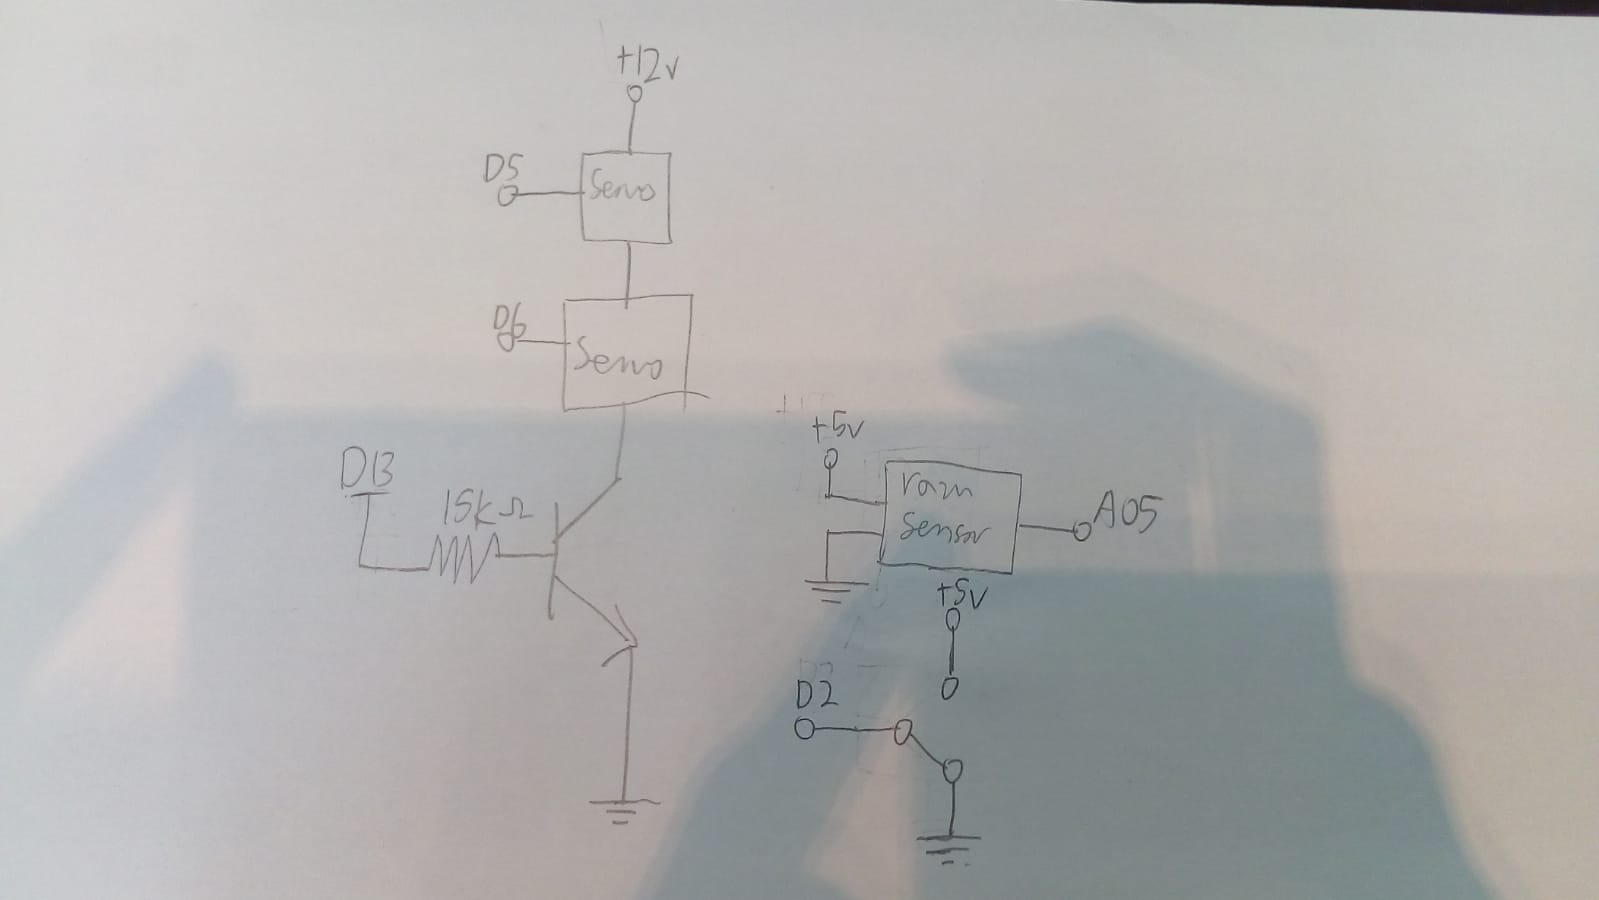 +12v
D5
Servo
D6
Servo
D13
15kΩ
+5v
rain
sensor
A05
+5v
D2